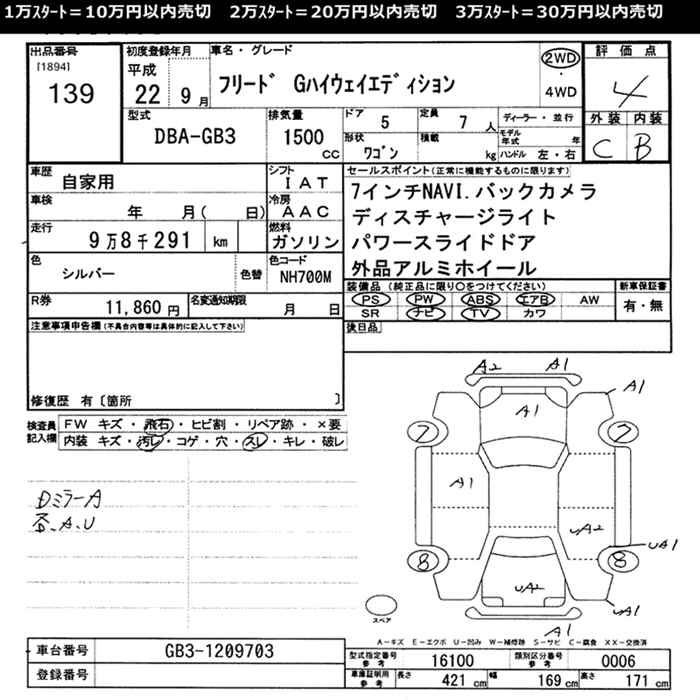 1万ｽﾀｰﾄ＝10万円以内売切　2万ｽﾀｰﾄ＝20万円以内売切　3万ｽﾀｰﾄ＝30万円以内売切
出品番号
[1894]
139
初度登録年月
平成
22 9月
車名・グレード
フリード Gハイウェイエディション
2WD
・
4WD
評価点
4
型式
DBA-GB3
排気量
1500
cc
ドア 5
定員 7 人
形状
ワゴン
積載
kg
ディーラー・並行
モデル年式 年
ハンドル 左・右
外装 内装
C B
車歴
自家用
シフト
IAT
車検
年 月( 日)
冷房
AAC
走行
9万8千291 km
燃料
ガソリン
色
シルバー
色替
色コード
NH700M
R券
11,860 円
名変通知期限
月 日
セールスポイント(正常に機能するものに限ります)
7インチNAVI.バックカメラ
ディスチャージライト
パワースライドドア
外品アルミホイール
装備品 (純正品に限り○をつけてください)
PS PW ABS エアB AW
SR ナビ TV カワ
新車保証書
有・無
後日品
注意事項申告欄(不具合内容等は具体的に記入して下さい)
修復歴 有〔箇所 〕
検査員記入欄
FW キズ・飛石・ヒビ割・リペア跡・×要
内装 キズ・汚レ・コゲ・穴・スレ・キレ・破レ
DミラーA
各.A.U
A2 A1
A1
A1
7 7
A1
uA2
uA1
8 8
uA2
uA1
A1
スペア
A－キズ E－エクボ U－凹み W－補修跡 S－サビ C－腐食 XX－交換済
車台番号
GB3-1209703
登録番号
型式指定番号
参考
16100
類別区分番号
参考
0006
車庫証明用
参考
長さ 421 cm
幅 169 cm
高さ 171 cm